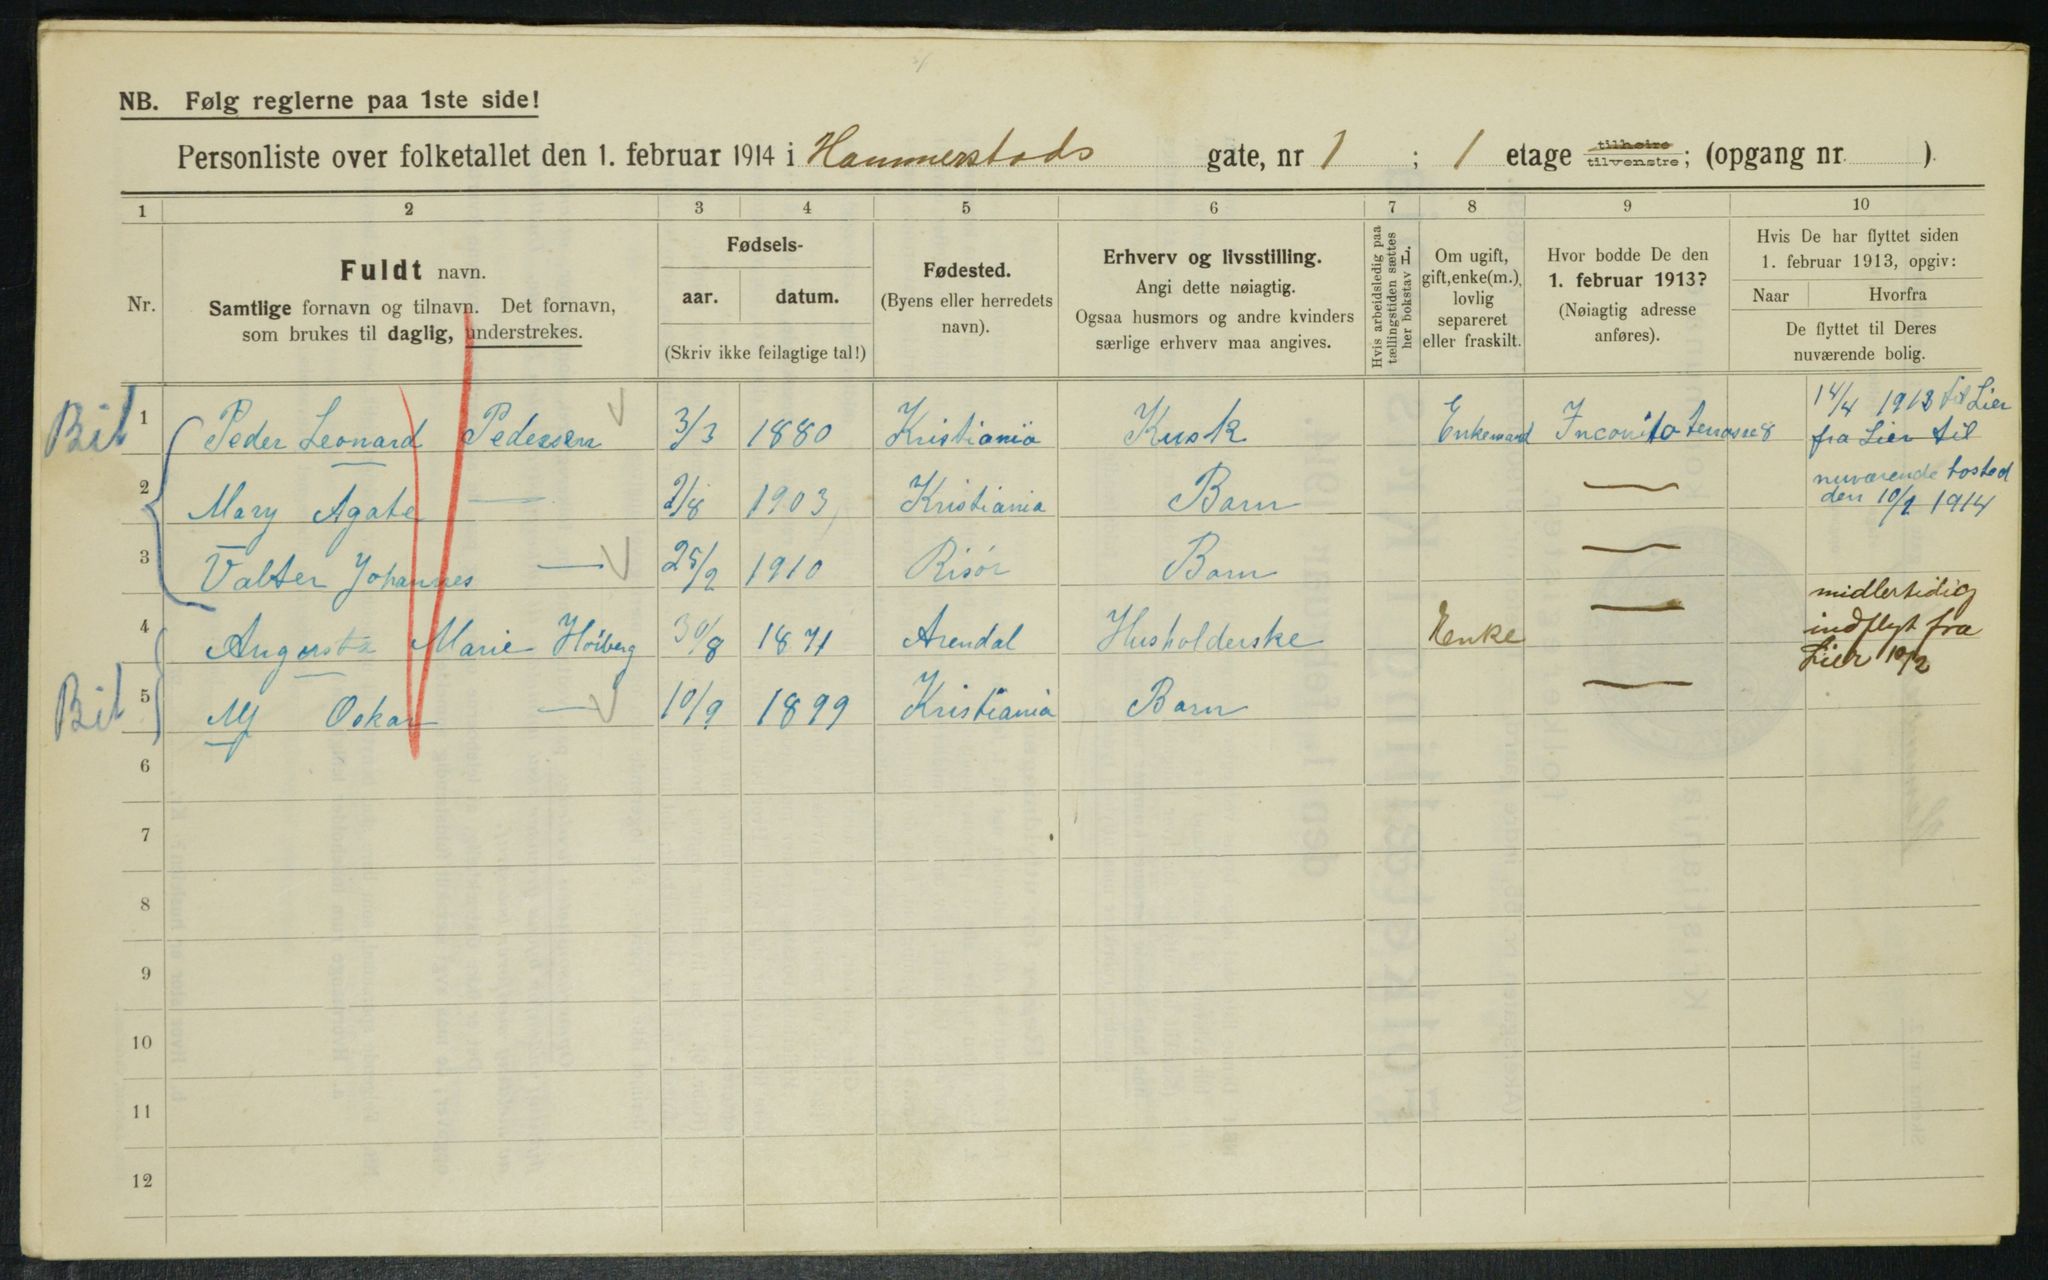 NB. Følg reglerne paa 1ste side!
Personliste over folketallet den 1. februar 1914 i Hammerstads gate, nr 1 ; 1 etage tilhøire tilvenstre; (opgang nr. ).
1 2 3 4 5 6 7 8 9 10
Nr.
Fuldt navn.
Samtlige fornavn og tilnavn. Det fornavn,
som brukes til daglig, understrekes.
Fødsels-
aar. datum.
(Skriv ikke feilagtige tal!)
Fødested.
(Byens eller herredets
navn).
Erhverv og livsstilling.
Angi dette nøiagtig.
Ogsaa husmors og andre kvinders
særlige erhverv maa angives.
Hvis arbeidsledig paa
tællingstiden sættes
her bokstav L.
Om ugift,
gift, enke(m.),
lovlig
separeret
eller fraskilt.
Hvor bodde De den
1. februar 1913?
(Nøiagtig adresse
anføres).
Hvis De har flyttet siden
1. februar 1913, opgiv:
Naar Hvorfra
De flyttet til Deres
nuværende bolig.
Bil 1 Peder Leonard Pedersen 3/3 1880 Kristiania Kusk Enkemand Inconito terrasse 8
14/4 1913 til Lier
fra Lier til
nuværende bosted
den 10/2 1914
2 Mary Agate — 2/8 1903 Kristiania Barn —
3 Valter Johannes — 25/2 1910 Risör Barn —
4 Augusta Marie Höiberg 30/8 1871 Arendal Husholderske Enke —
midlertidig
indflyt fra
Lier 10/2
Bil 5 Alf Oskar — 10/9 1899 Kristiania Barn —
6
7
8
9
10
11
12